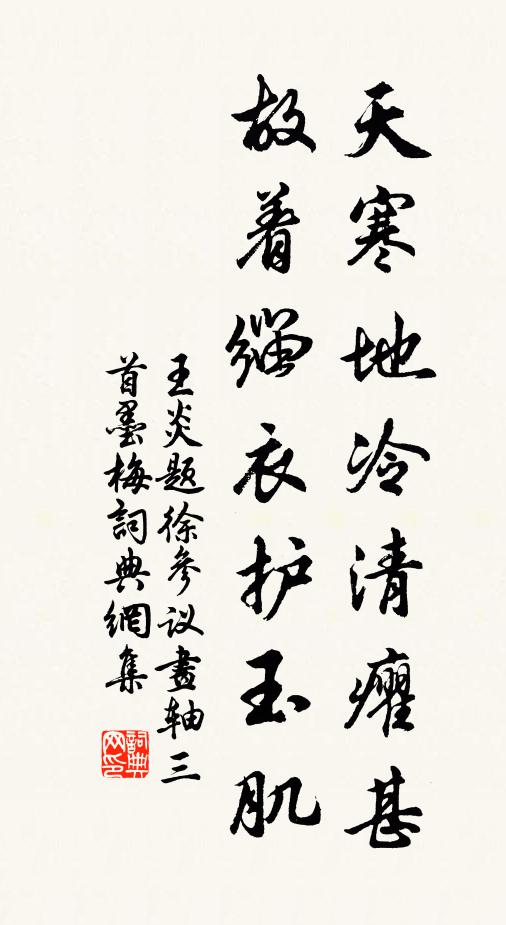 天寒地冷清癯甚
故着缁衣护玉肌
王炎题徐参议畫轴三
首墨梅詞典網集
詞典
网印